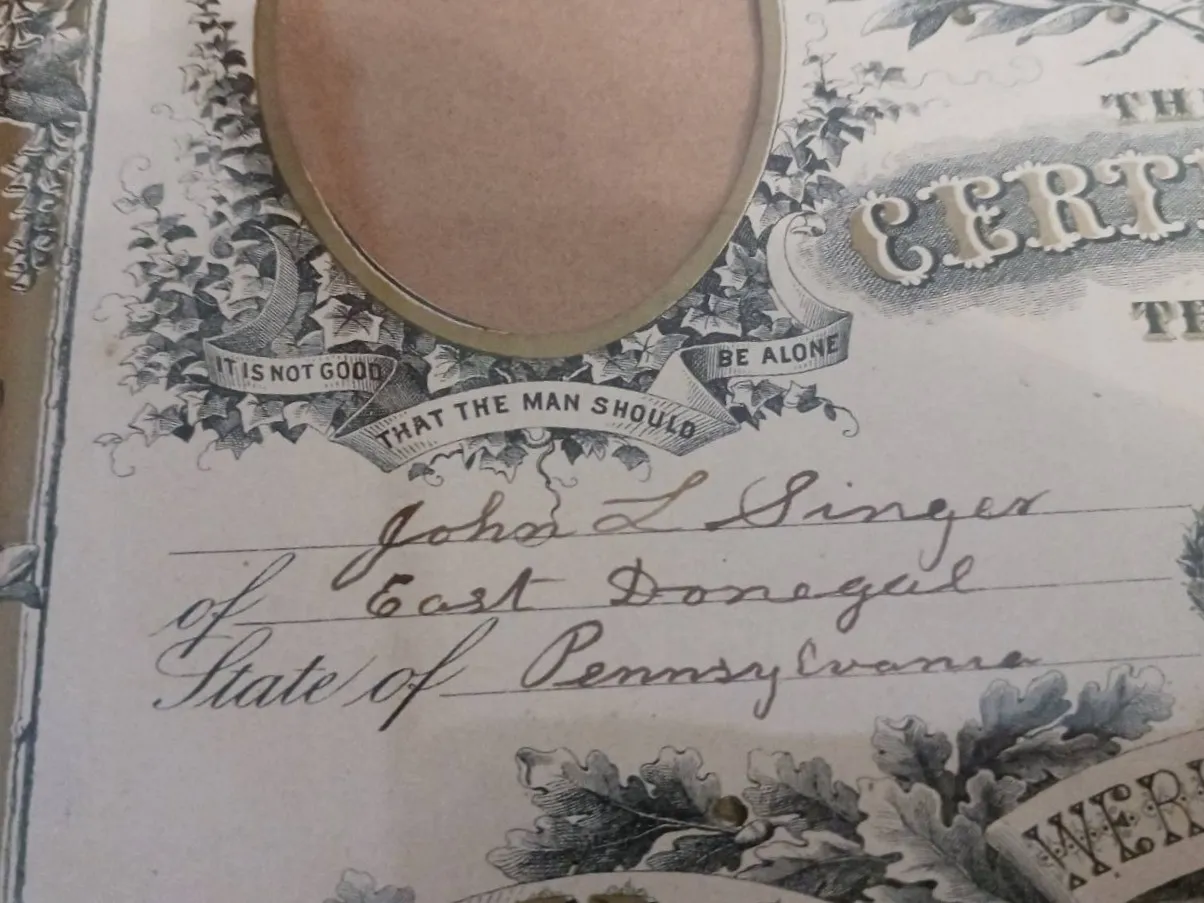 IT IS NOT GOOD
THAT THE MAN SHOULD
BE ALONE
John L Singer
of East Donegal
State of Pennsylvania